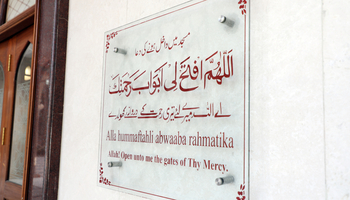 مسجد میں داخل ہونے کی دعا
اَللّٰهُمَّ افْتَحْ لِیْ اَبْوَابَ رَحْمَتِكَ
اے اللہ میرے لئے تیری رحمت کے دروازے کھول دے
Alla hummaftahli abwaaba rahmatika
Allah! Open unto me the gates of Thy Mercy.